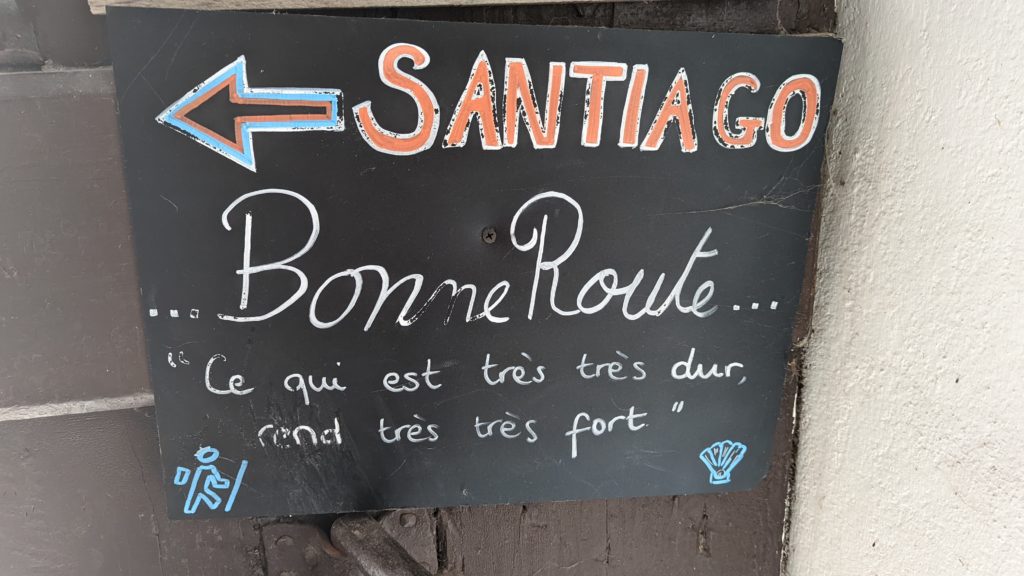 SANTIAGO
...Bonne Route...
"Ce qui est très très dur,
rend très très fort"